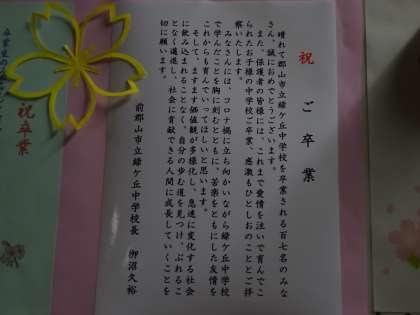 祝 ご卒業
晴れて郡山市立緑ケ丘中学校を卒業される百七名のみな
さん、誠におめでとうございます。
また、保護者の皆様には、これまで愛情を注いで育んでこ
られたお子様の中学校ご卒業、感激もひとしおのこととご拝
察いたします。
みなさんには、コロナ禍に立ち向かいながら緑ケ丘中学校
で学んだことを胸に刻むとともに、苦楽をともにした友情を
これからも育んでいってほしいと思います。
そして、ますます価値観が多様化し、急速に変化する社会
に飲み込まれることなく、自分の歩む道を見つけ、ぶれるこ
となく邁進し、社会に貢献できる人間に成長していくことを
切に願います。
前郡山市立緑ケ丘中学校長 栁沼久裕
祝卒業